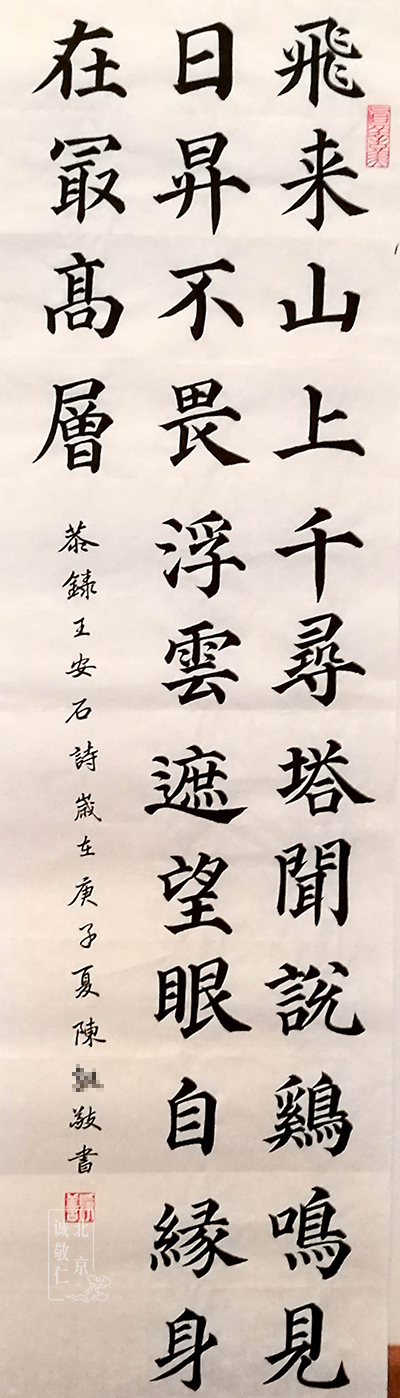 飛来山上千尋塔聞説鷄鳴見
日昇不畏浮雲遮望眼自縁身
在冣髙層
恭録王安石詩歳在庚子夏陳敬書
北京
诚敬仁